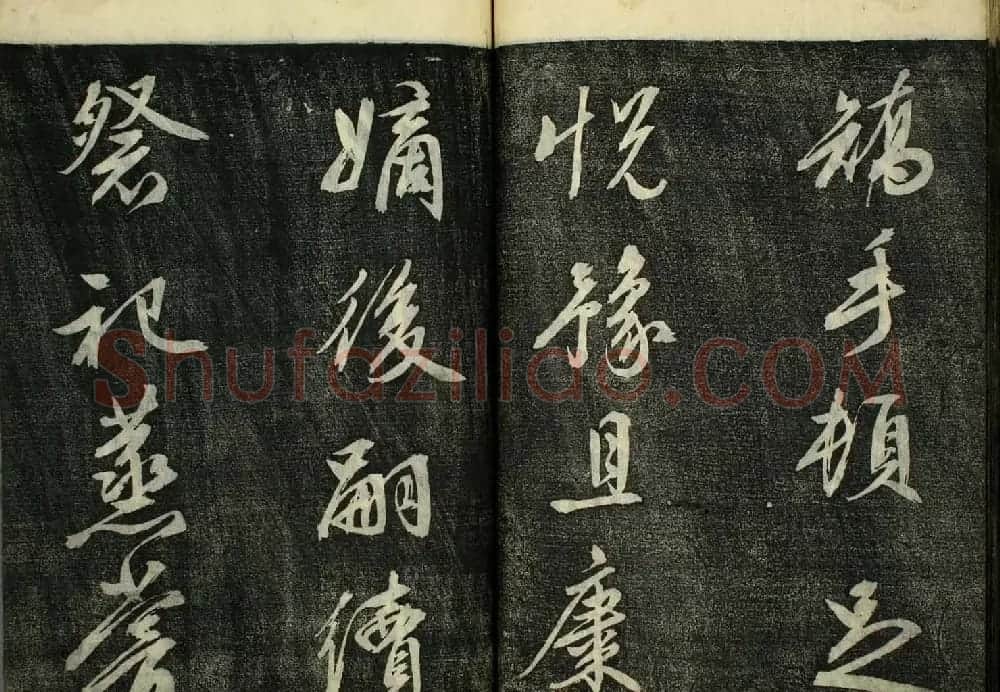 矯手頓足
悅豫且康
嫡後嗣續
祭祀蒸嘗
Shufaziliao.COM